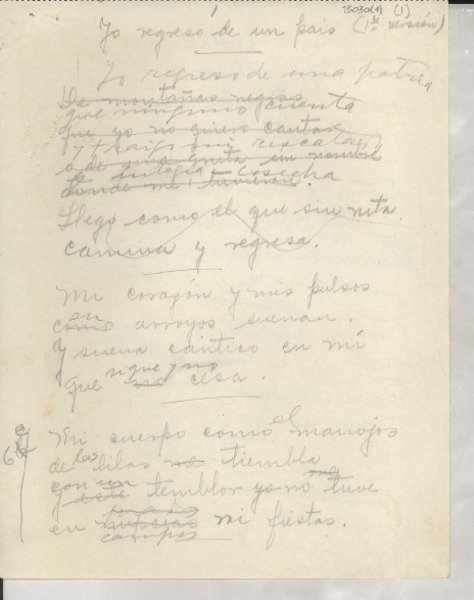 1
B030(4) (1)
Yo regreso de un país (1ª versión)
Yo regreso de una patria
De montañas negras
que ninguno cuenta
que yo no quiero cantar
y traigo mi rescatada
o de una gruta sin nombre
cosecha
donde me tuvieron.
Llego como el que sin ruta
camina y regresa.
Mi corazón y mis pulsos
en
como arroyos suenan.
Y suena cántico en mí
sigue y no
que no cesa.
Mi cuerpo como el manojos
de las lilas me tiembla
con un me
y este temblor yo no tuve
en mi fiestas.
campos